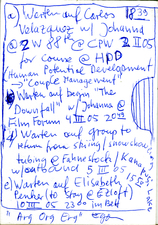 a) Warten auf Carlos 1839
Velazquez w/ Johanna
@ 2W 88th @ CPW 2 II 05
for course @ HPD
Human Potential Development
→ "Couple Management"
Warten auf begin "The
Downfall" w/ Johanna @
Film Forum 4 III 05 20
Warten auf group to
return from skiing/snowshoeing
tubing @ Fahnestock/
w/outbound 5 III 05 15
e) Warten auf Elisabeth
(to stay @ Eloft)
10 III 05 2300 in Bett
"Arg Org Erg" Ego